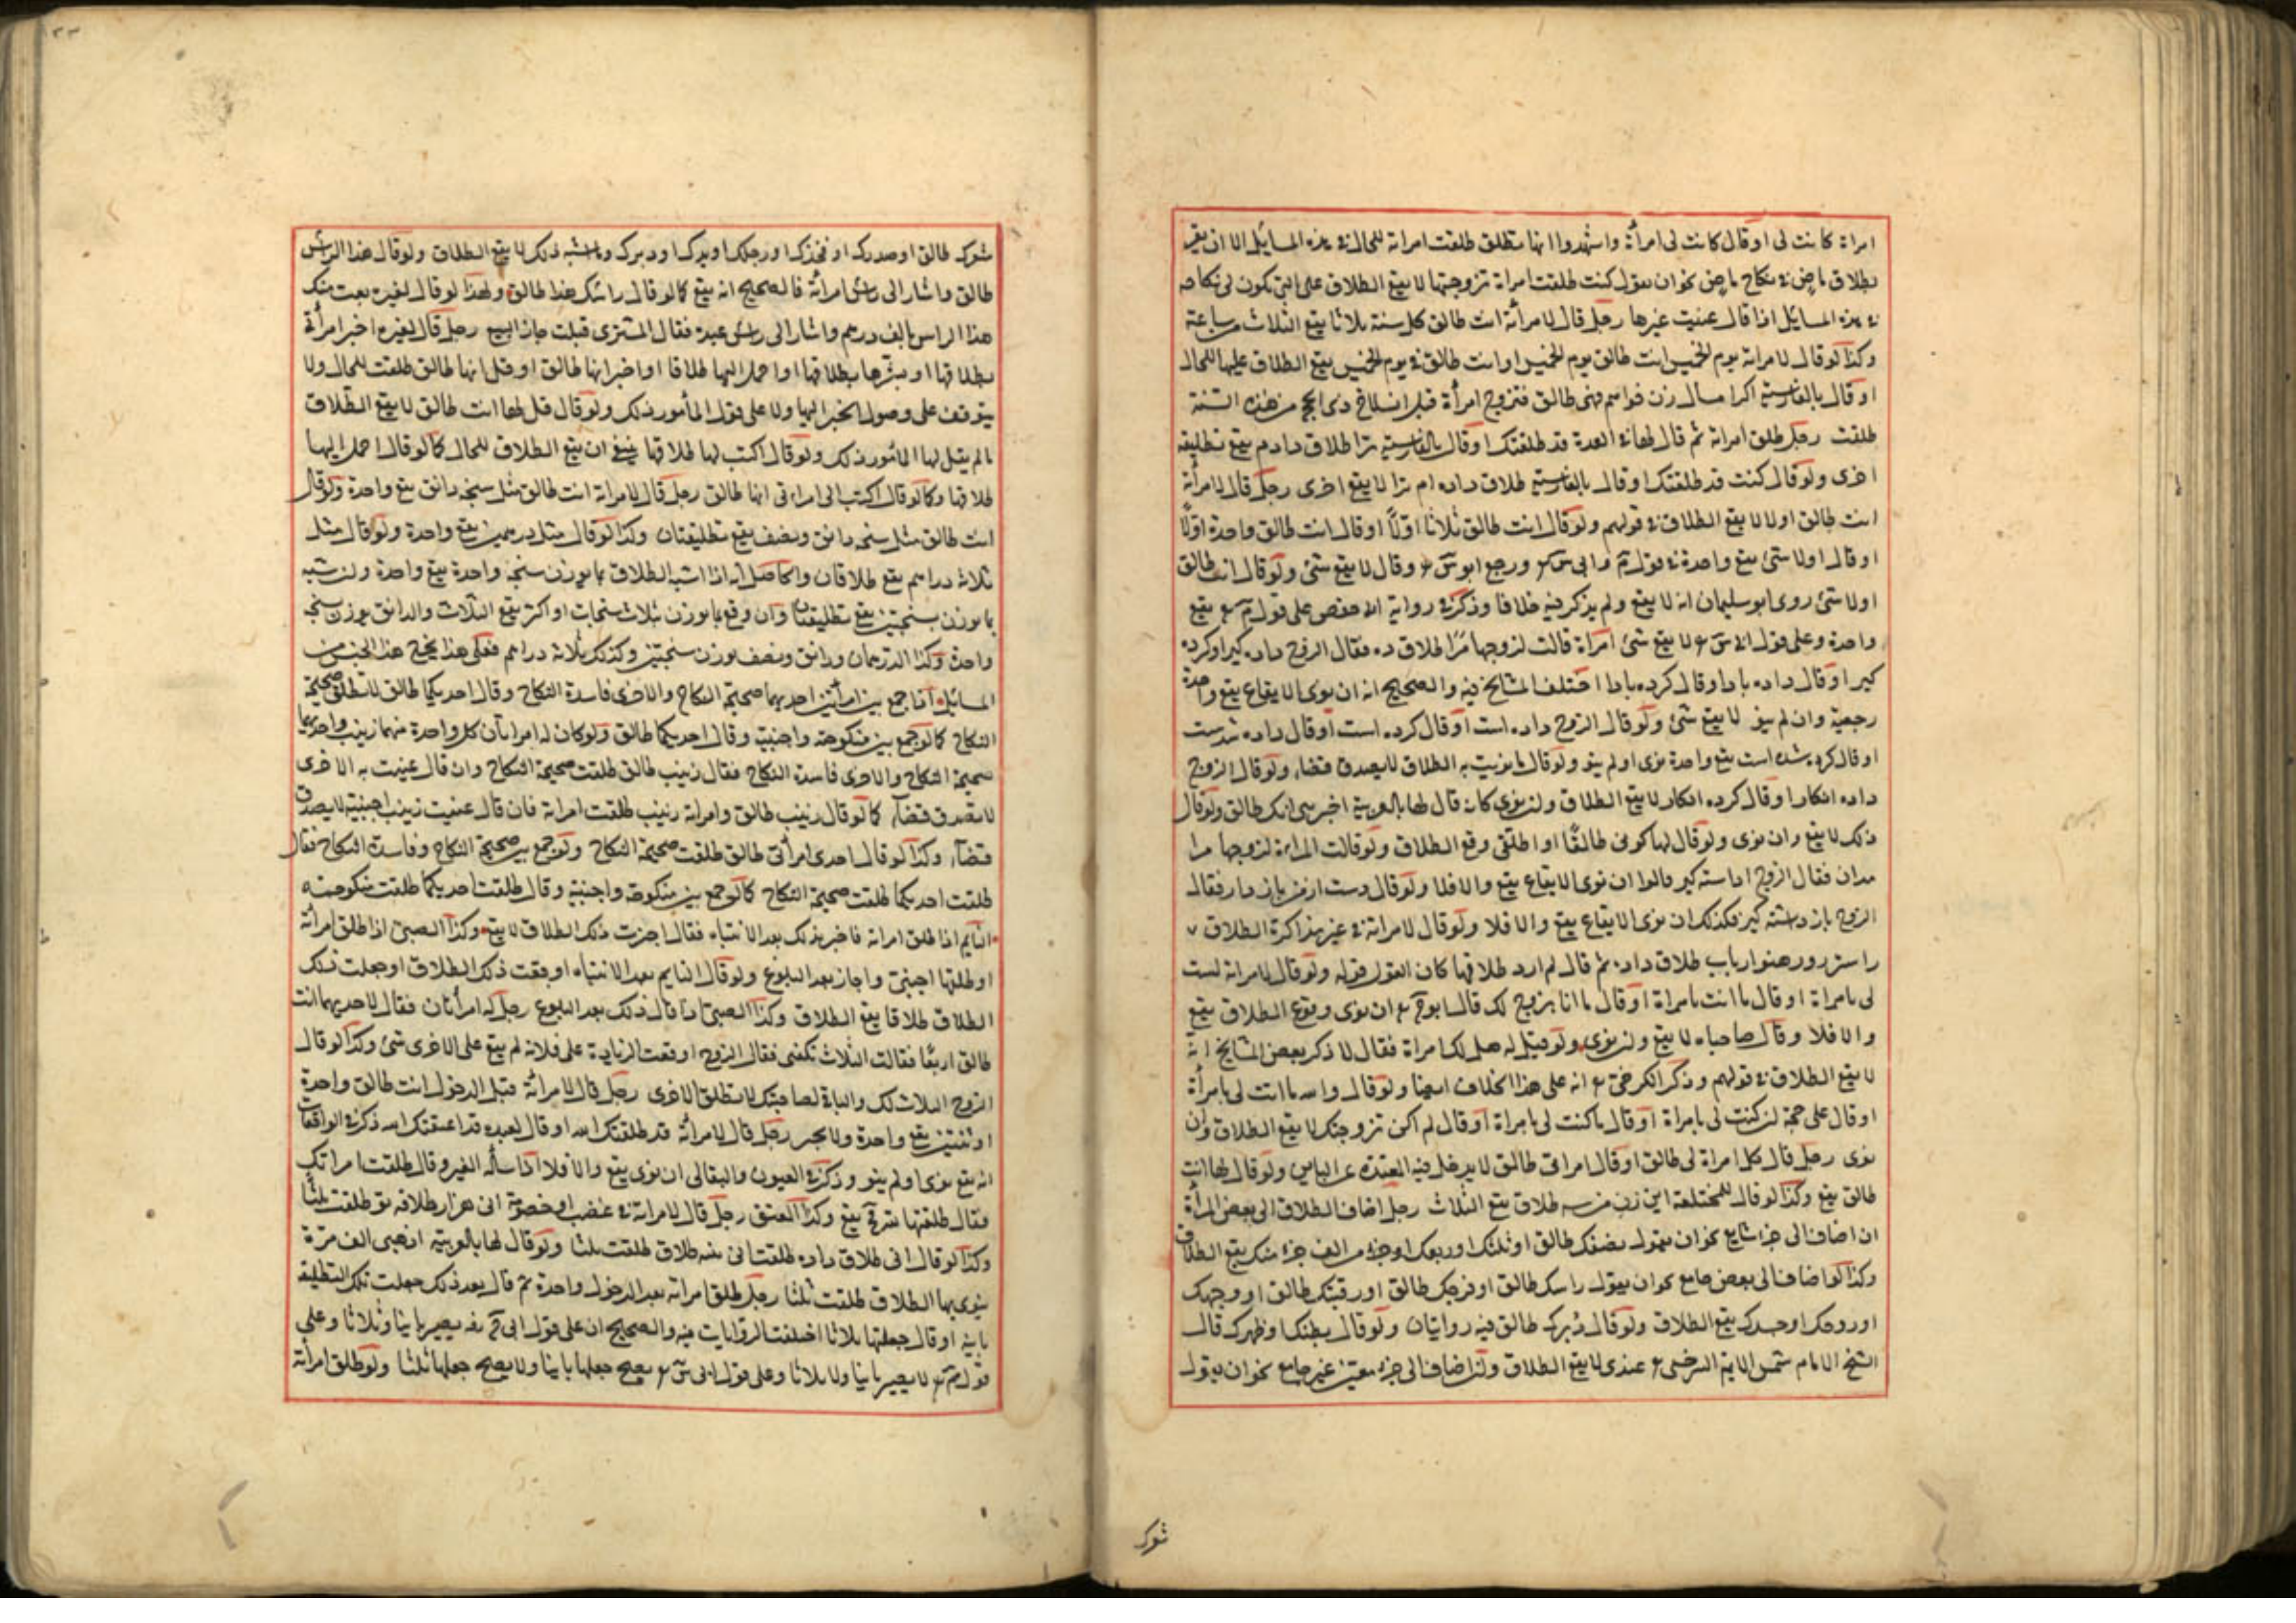 امراة كانت لى او قال كانت لى امرأة واشهدوا انها طالق طلقت امراته للحال فى هذه المسائل الا ان يقر
بطلاق ماض فى نكاح ماض نحو ان يقول كنت طلقت امراة تزوجتها لا يقع الطلاق على التى تكون فى نكاحه
فى هذه المسائل اذا قال عنيت غيرها رجل قال لامرأته انت طالق كل سنة ثلاثا يقع الثلاث من ساعته
وكذا لو قال لامراته يوم الخميس انت طالق يوم الخميس او انت طالق فى يوم الخميس يقع الطلاق عليها للحال
او قال بالفارسية اكر امسال زن خواهم فهى طالق فتزوج امرأة قبل انسلاخ ذى الحج من هذه السنة
طلقت رجل طلق امراته ثم قال لها فى العدة قد طلقتك او قال بالفارسية ترا طلاق دادم يقع تطليقة
اخرى ولو قال كنت قد طلقتك او قال بالفارسية طلاق داده ام ترا لا يقع اخرى رجل قال لامرأته
انت طالق اولا لا يقع الطلاق فى قولهم ولو قال انت طالق ثلاثا اولا او قال انت طالق واحدة اولا
او قال اولا شئ يقع واحدة فى قول م وابى س ورجع ابو س وقال لا يقع شئ ولو قال انت طالق
اولا شئ روى ابو سليمان انه لا يقع ولم يذكر فيه خلافا وذكر فى رواية ابى حفص على قول م يقع
واحدة وعلى قول ابى س لا يقع شئ امراة قالت لزوجها مرا طلاق ده فقال الزوج داده كير او كرده
كير او قال داده باد او قال كرده باد اختلف المشايخ فيه والصحيح انه ان نوى الايقاع يقع واحدة
رجعية وان لم ينو لا يقع شئ ولو قال الزوج داده است او قال كرده است او قال داده شدست
او قال كرده شده است يقع واحدة نوى او لم ينو ولو قال ما نويت به الطلاق لا يصدق قضاء ولو قال الزوج
داده انكار او قال كرده انكار لا يقع الطلاق وان نوى كانه قال لها بالعربية احسبى انك طالق ولو قال
ذلك لا يقع وان نوى ولو قال لها كونى طالقا او اطلقى وقع الطلاق ولو قالت المراة لزوجها مرا
فقال الزوج كير قالوا ان نوى الايقاع يقع والا فلا ولو قال دست از من باز دار فقال
الزوج باز داشته كير فكذلك ان نوى الايقاع يقع والا فلا ولو قال لامراته فى غير مذاكرة الطلاق
طلاق داده ثم قال لم ارد طلاقها كان القول قوله ولو قال لامراته لست
لى بامراة او قال ما انت بامراة او قال ما انا بزوج لك قال ابو ح ان نوى وقوع الطلاق يقع
والا فلا وقال صاحباه لا يقع وان نوى ولو قيل له هل لك امراة فقال لا ذكر بعض المشايخ انه
لا يقع الطلاق فى قولهم وذكر الكرخى انه على هذا الخلاف ايضا ولو قال والله ما انت لى بامرأة
او قال على حجة ان كنت لى بامراة او قال ما كنت لى بامراة او قال لم اكن تزوجتك لا يقع الطلاق وان
نوى رجل قال كل امراة لى طالق او قال امراتى طالق لا يدخل فيه المعتدة عن الباين ولو قال لها انت
طالق يقع وكذا لو قال للمختلعة اين زن من سه طلاق يقع الثلاث رجل اضاف الطلاق الى بعض المرأة
ان اضاف الى جزء شايع نحو ان يقول نصفك طالق او ثلثك او ربعك او جزء من الف جزء منك يقع الطلاق
وكذا لو اضاف الى بعض جامع نحو ان يقول راسك طالق او فرجك طالق او رقبتك طالق او وجهك
او روحك او جسدك يقع الطلاق ولو قال دبرك طالق فيه روايتان ولو قال بطنك او ظهرك قال
الشيخ الامام شمس الايمة السرخسى عندى لا يقع الطلاق وان اضاف الى جزء معين غير جامع نحو ان يقول
شعرك
شعرك طالق او صدرك او فخذك او رجلك او يدك او دبرك وما اشبه ذلك لا يقع الطلاق ولو قال هذا الراس
طالق واشار الى راس امرأته فالصحيح انه يقع كما لو قال راسك هذا طالق ولهذا لو قال لغيره بعت منك
هذا الراس بالف درهم واشار الى راس عبده فقال المشترى قبلت جاز البيع رجل قال لغيره اخبر امرأتى
بطلاقها او بشرها بطلاقها او احمل اليها طلاقا او اخبر انها طالق او قل انها طالق طلقت للحال ولا
يتوقف على وصول الخبر اليها ولا على قول المأمور ذلك ولو قال قل لها انت طالق لا يقع الطلاق
ما لم يقل لها المأمور ذلك ولو قال اكتب لها طلاقها ينبغى ان يقع الطلاق للحال كما لو قال احمل اليها
طلاقها وكما لو قال اكتب الى امراتى انها طالق رجل قال لامراته انت طالق مثل سنجة دانق يقع واحدة ولو قال
انت طالق مثل سنجة دانق ونصف يقع تطليقتان وكذا لو قال مثل درهمين يقع واحدة ولو قال مثل
ثلاثة دراهم يقع طلاقان والحاصل انه اذا اشبه الطلاق بما يوزن سنجة واحدة يقع واحدة وان شبه
بما يوزن بسنجتين يقع تطليقتان وان وقع بما يوزن بثلاث سنجات او اكثر يقع الثلاث والدانق يوزن بسنجة
واحدة وكذا الدرهمان ودانق ونصف يوزن بسنجتين وكذلك ثلاثة دراهم فعلى هذا يخرج هذا الجنس من
المسائل اذا جمع بين امرأتين احديهما صحيحة النكاح والاخرى فاسدة النكاح وقال احديكما طالق لا تطلق صحيحة
النكاح كما لو جمع بين منكوحته واجنبية وقال احديكما طالق ولو كان له امراتان كل واحدة منهما زينب واحديهما
صحيحة النكاح والاخرى فاسدة النكاح فقال زينب طالق طلقت صحيحة النكاح وان قال عنيت به الاخرى
لا يصدق قضاء كما لو قال زينب طالق وامراته زينب طلقت امراته فان قال عنيت زينب اجنبية لا يصدق
قضاء وكذا لو قال احدى امرأتى طالق طلقت صحيحة النكاح ولو جمع بين صحيحة النكاح وفاسدة النكاح فقال
طلقت احديكما طلقت صحيحة النكاح كما لو جمع بين منكوحة واجنبية وقال طلقت احديكما طلقت منكوحته
النايم اذا طلق امراته فاخبر بذلك بعد الانتباه فقال اجزت ذلك الطلاق لا يقع وكذا الصبى اذا طلق امرأته
او طلقها اجنبى واجاز بعد البلوغ ولو قال النايم بعد الانتباه اوقعت ذلك الطلاق او جعلت ذلك
الطلاق طلاقا يقع الطلاق وكذا الصبى اذا قال ذلك بعد البلوغ رجل له امرأتان فقال لاحديهما انت
طالق اربعا فقالت الثلاث تكفنى فقال الزوج اوقعت الزيادة على فلانة لم يقع على الاخرى شئ وكذا لو قال
الزوج الثلاث لك والباقى لصاحبتك لا تطلق الاخرى رجل قال لامرأته قبل الدخول انت طالق واحدة
او ثنتين يقع واحدة ولا يخير رجل قال لامرأته قد طلقتك الله او قال لعبده قد اعتقتك الله ذكر فى الواقعات
انه يقع نوى او لم ينو وذكر فى العيون والبقالى ان نوى يقع والا فلا اذا سأله الغير وقال طلقت امراتك
فقال طلقتها يقع وكذا العتق رجل قال لامراته فى غضب او خصومة اى هزار طلاقه تو طلقت ثلثا
وكذا لو قال اى طلاق داده طلقت اى سه طلاق طلقت ثلثا ولو قال لها بالعربية اذهبى الف مرة
ينوى بها الطلاق طلقت ثلثا رجل طلق امراته بعد الدخول واحدة ثم قال بعد ذلك جعلت تلك التطليقة
باينة او قال جعلتها ثلاثا اختلفت الروايات فيه والصحيح ان على قول ابى ح يصير باينا وثلاثا وعلى
قول م لا يصير باينا ولا ثلاثا وعلى قول ابى س يصح جعلها باينا ولا يصح جعلها ثلثا ولو طلق امرأته